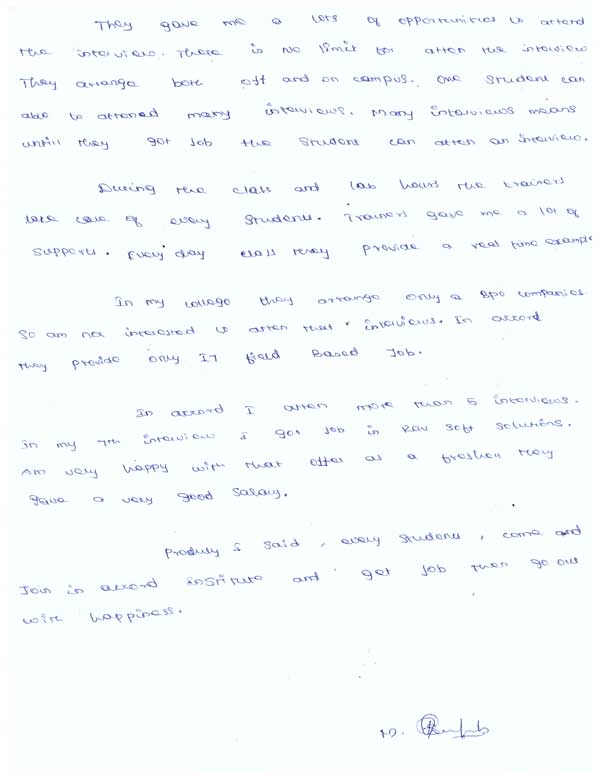 They gave me a lots of opportunities to attend
the interview. There is no limit for atten the interview
They arrange both off and on campus. One student can
able to attened many interviews. Many interviews means
untill they got job the student can atten an interview.
During the class and lab hours the trainers
take care of every students. Trainers gave me a lot of
supports. Every day class they provide a real time example
In my college they arrange only a BPO companies
So am not interested to atten that interviews. In accord
they provide only IT field Based Job.
In accord I atten more than 5 interviews.
In my 7th interview I got job in Rav soft solutions.
Am very happy with that offer as a fresher they
gave a very good salary.
Proudly I said, every students, come and
Join in accord institute and get job then go out
with happiness.
M.